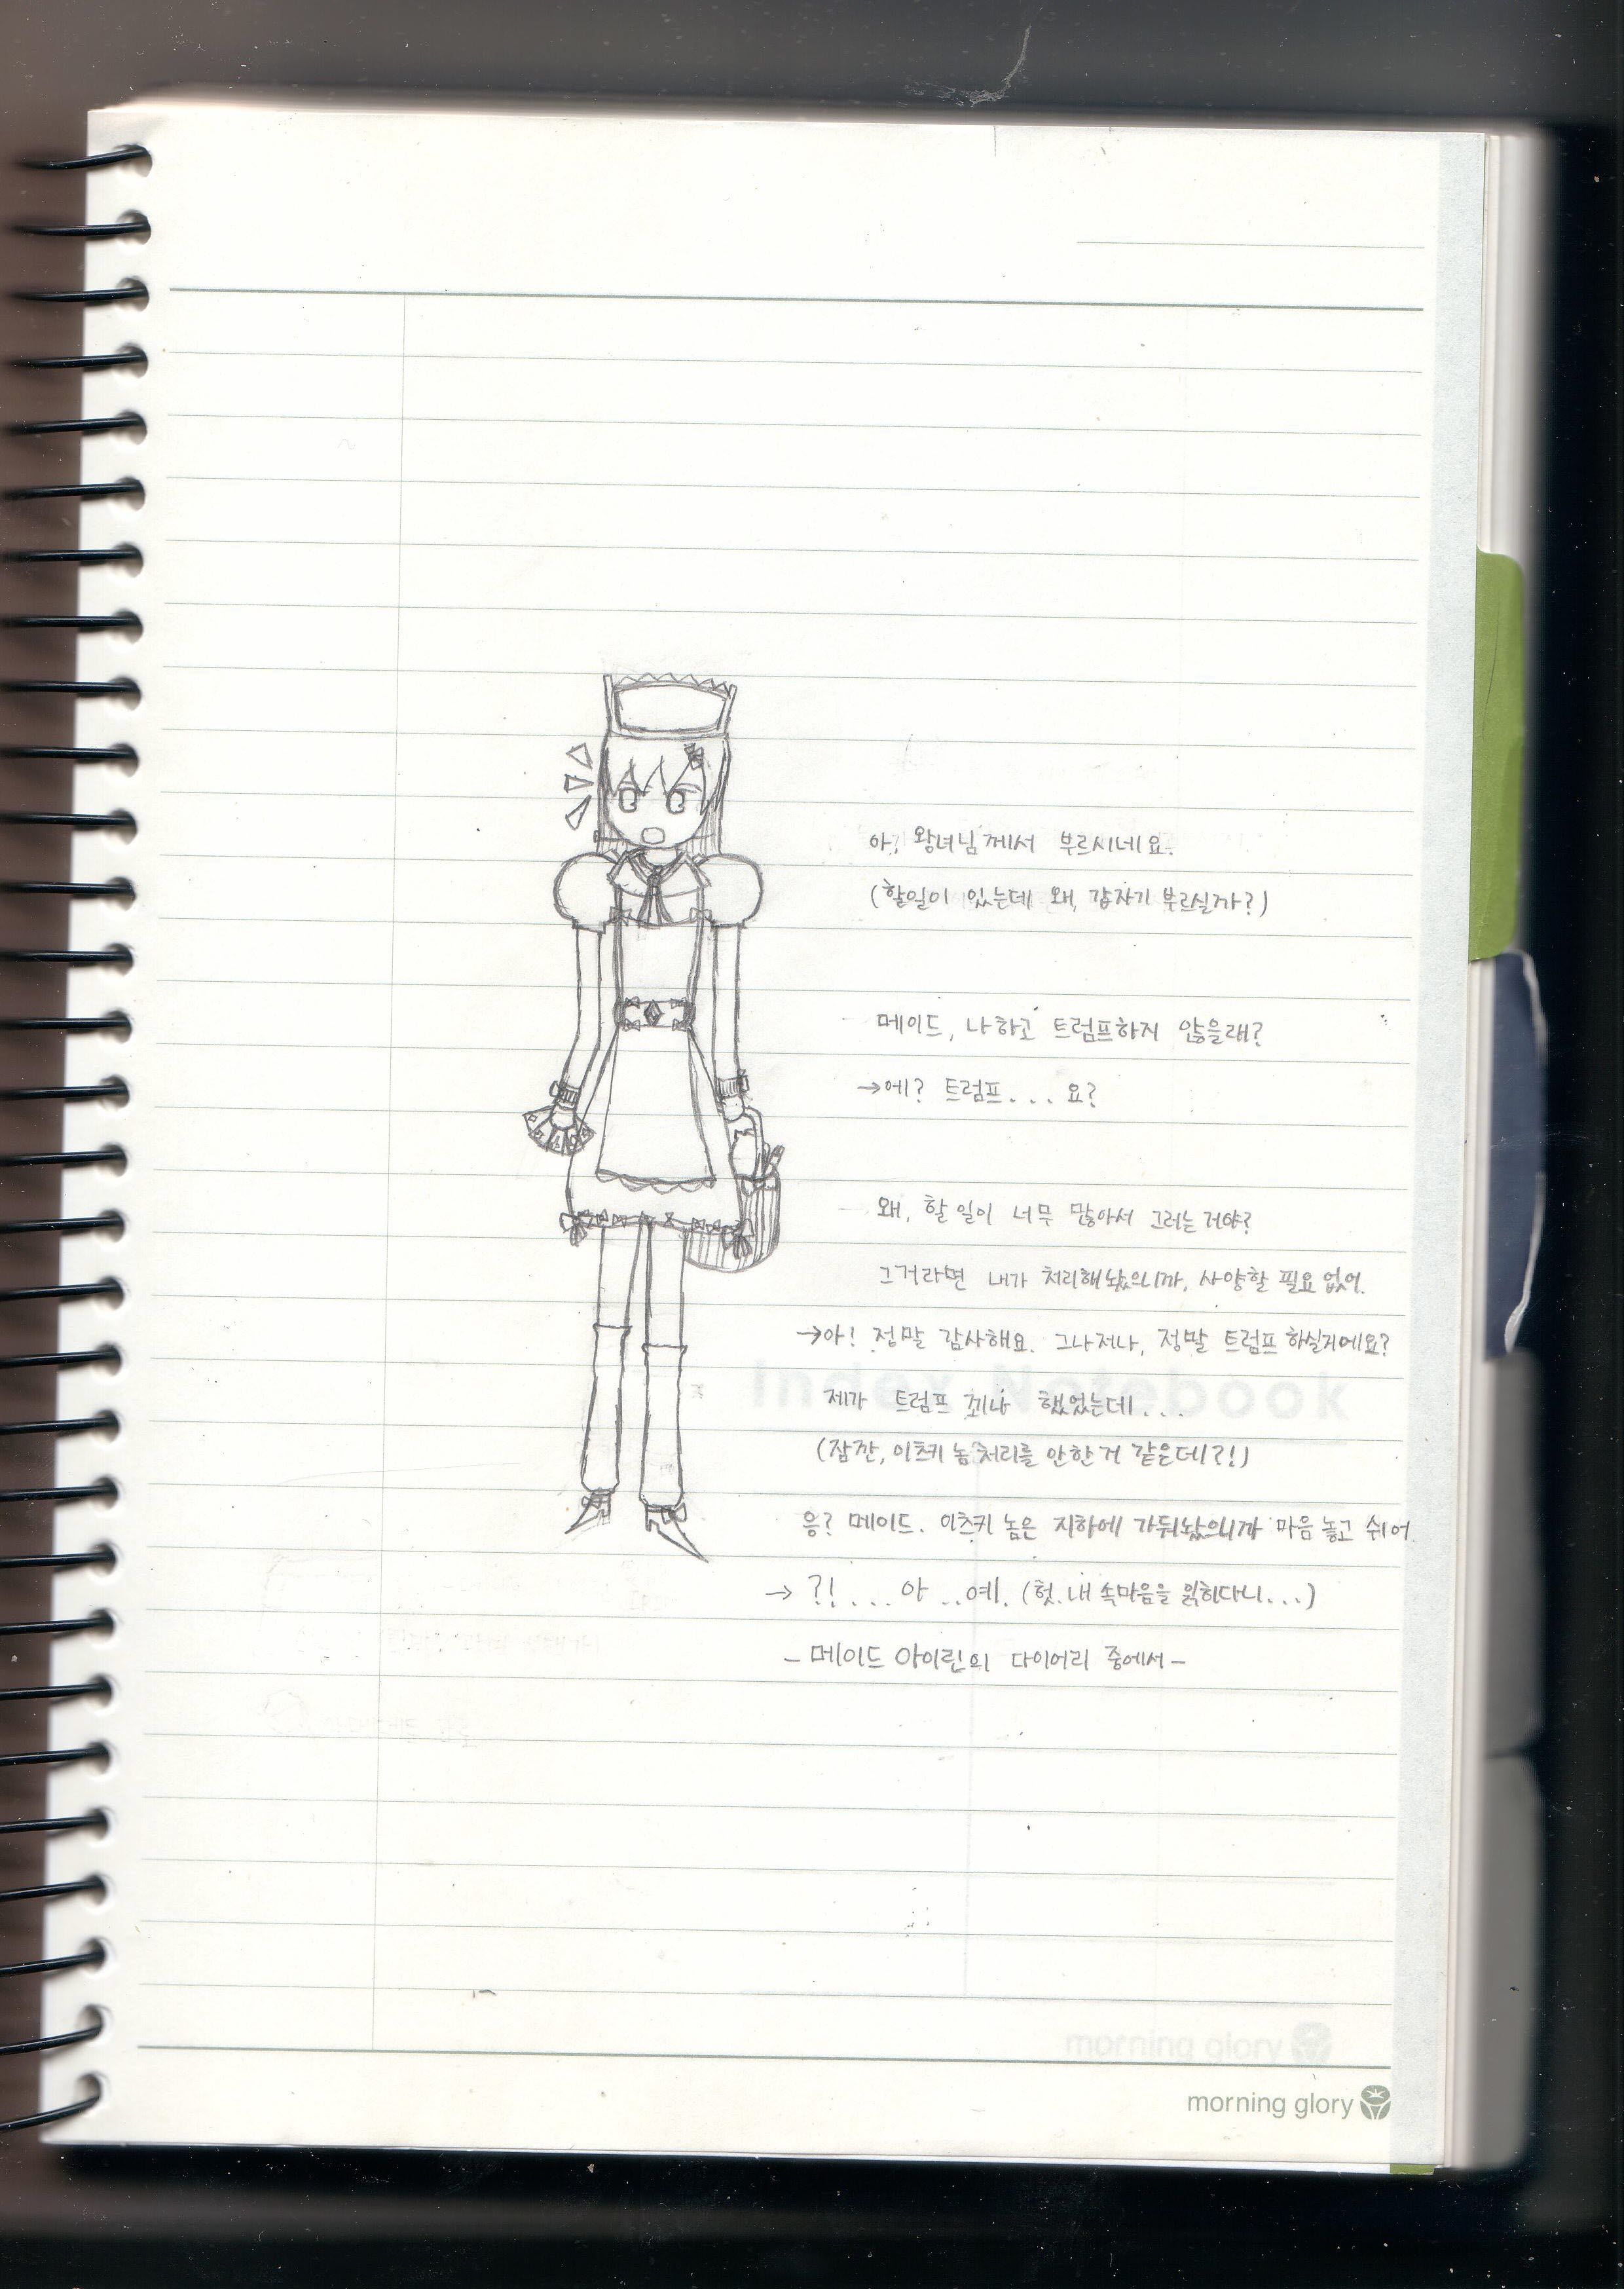 아, 왕녀님께서 부르시네요.
(할일이 있는데 왜, 갑자기 부르실까?)
메이드, 나하고 트럼프하지 않을래?
→에? 트럼프... 요?
왜, 할 일이 너무 많아서 그러는 거야?
그거라면 내가 처리해놨으니까, 사양할 필요 없어.
→아! 정말 감사해요. 그나저나, 정말 트럼프 하실거에요?
제가 트럼프 꽤나 했었는데...
(잠깐, 이츠키 놈 처리를 안한 거 같은데?!)
응? 메이드. 이츠키 놈은 지하에 가둬놨으니까 마음 놓고 쉬어.
→ ?! ... 아 ..예. (헛. 내 속마음을 읽히다니...)
- 메이드 아이린의 다이어리 중에서 -
Index Notebook
morning glory
morning glory